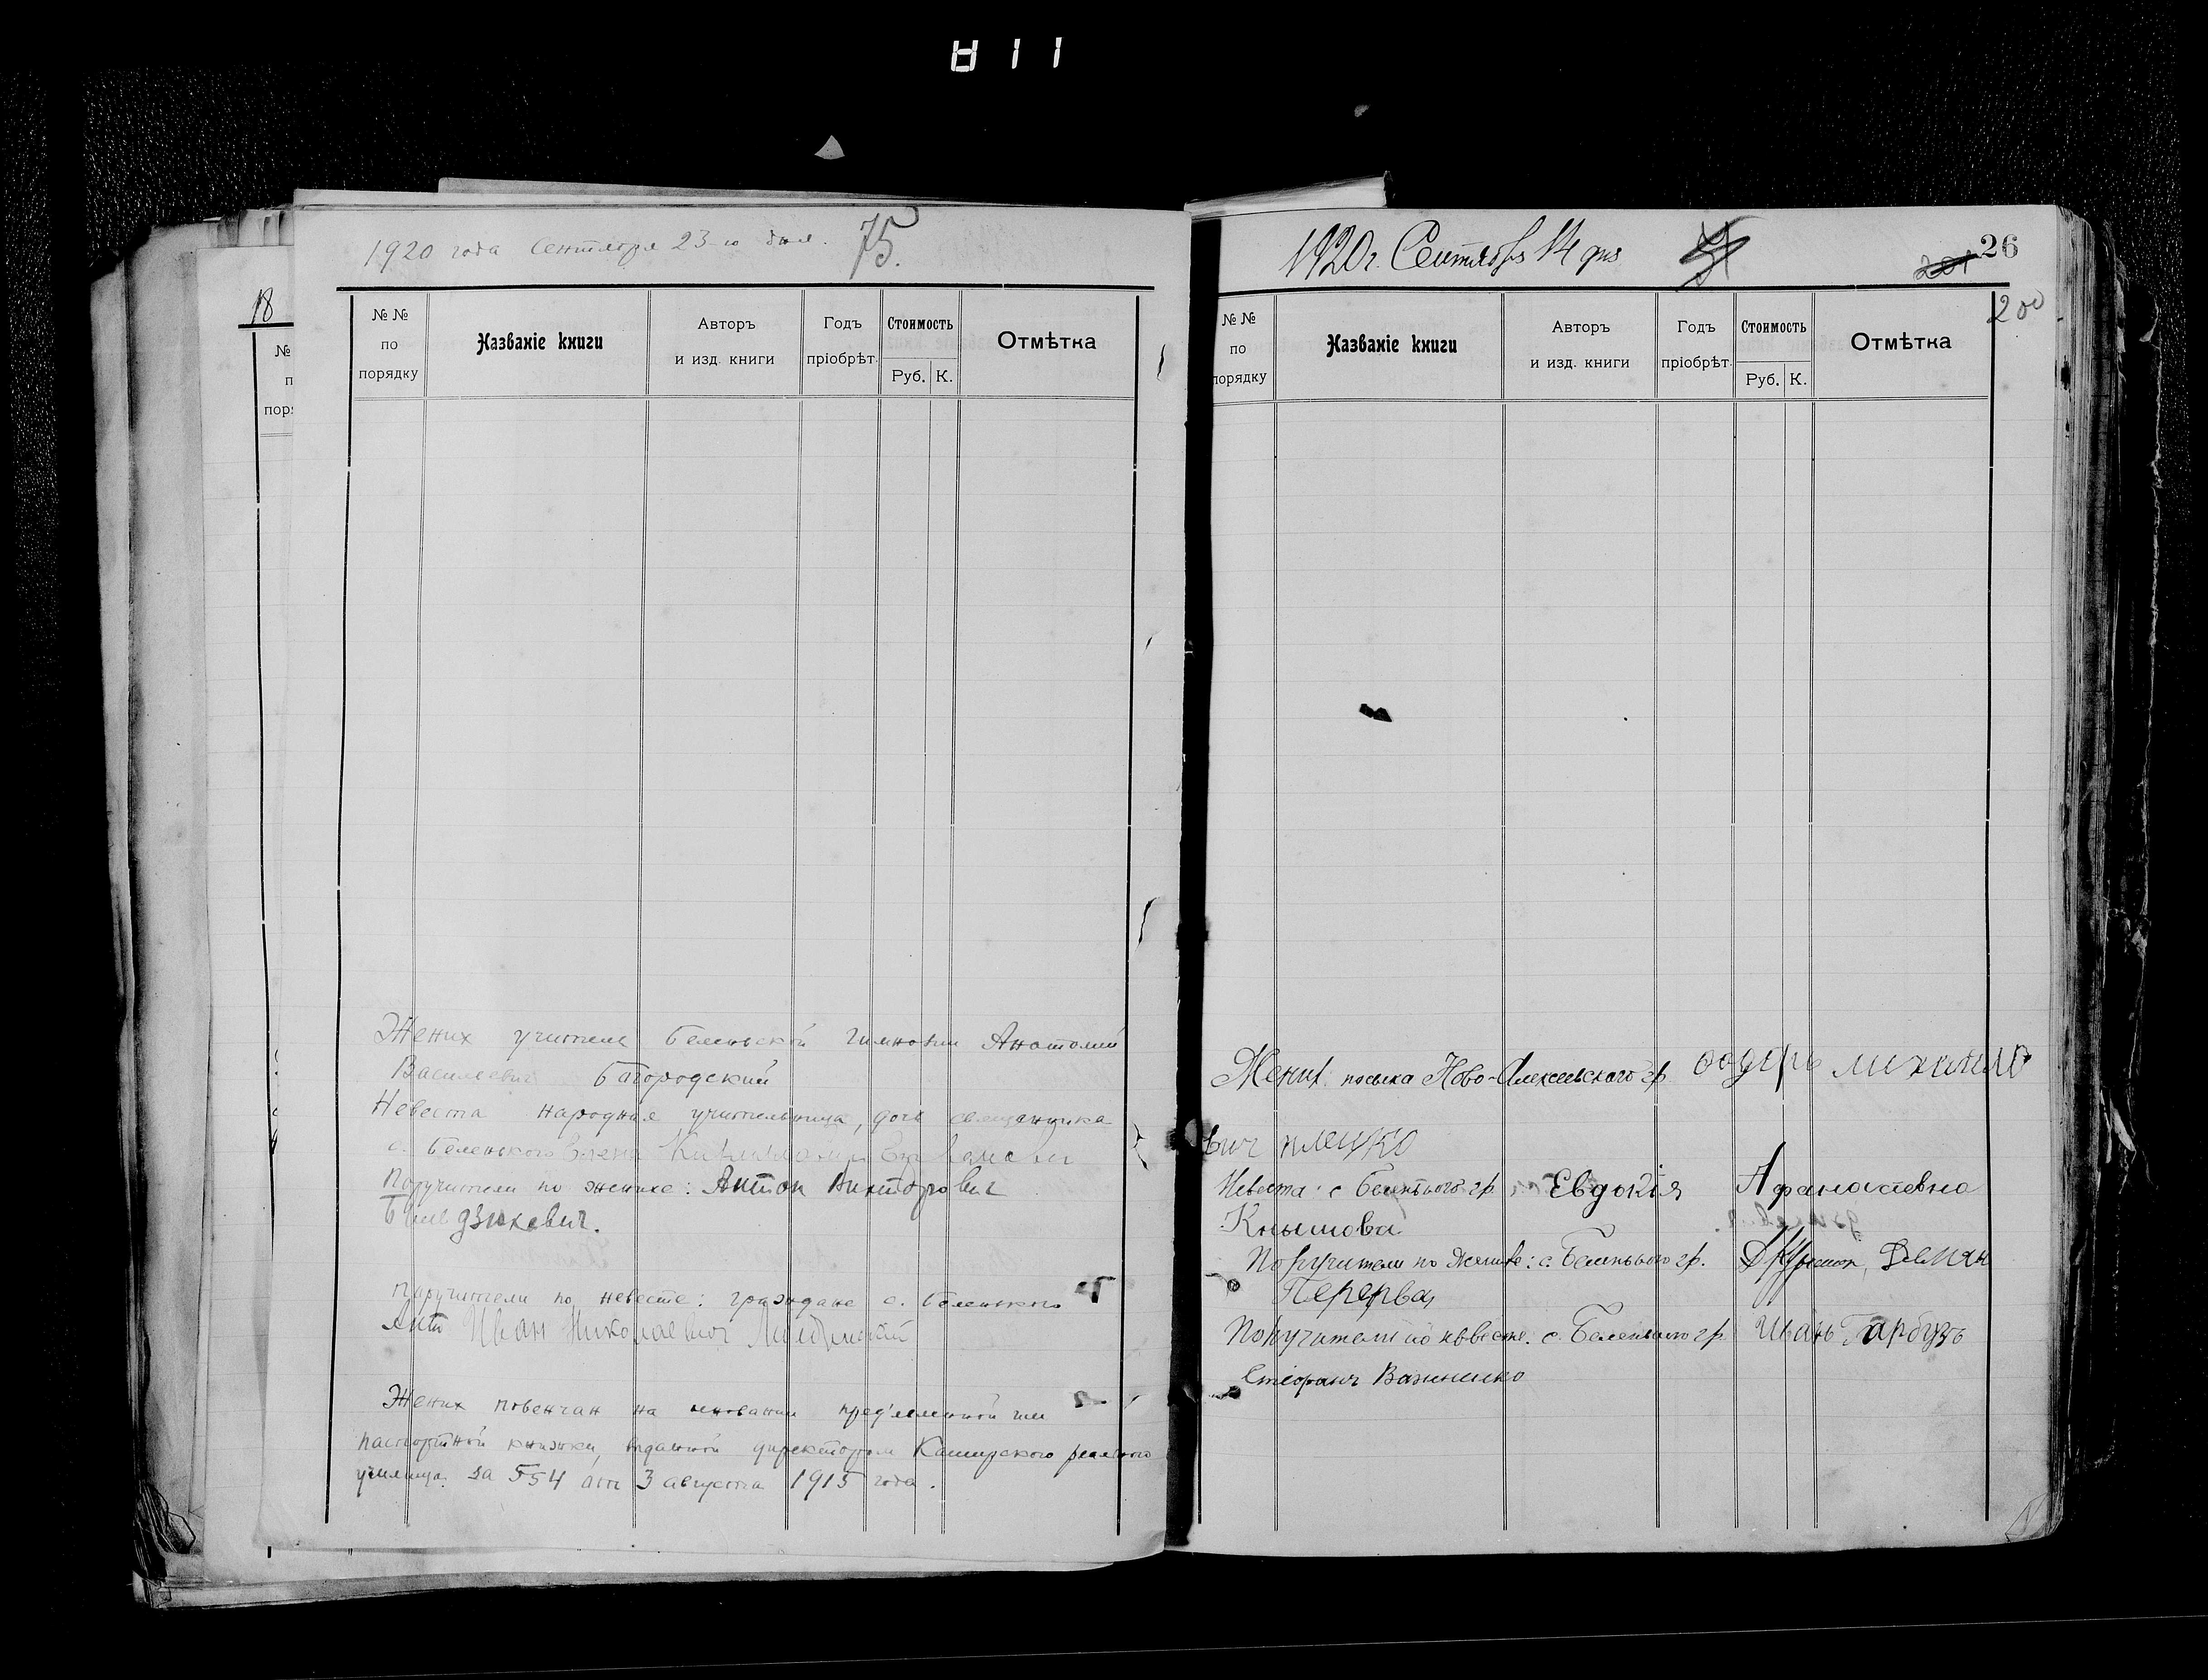 1920 года Сентября 23-го дня. 75.
№ № по порядку
Названіе книги
Авторъ и изд. книги
Годъ пріобрѣт.
Стоимость
Руб. К.
Отмѣтка
Жених учитель Беленьской гимназии Анатолий
Василевич Багородский
Невеста народная учительница, дочь священника
с. Беленького Елена
Поручители по женихе: Антон Викторович
поручители по невесте: граждане с. Беленького
Иван Николаевич
Жених повенчан на основании пред'явленной им
паспортной книжки, выданной директором Каширского реального
училища за 554 от 3 августа 1915 года.
18
1920 г. Сентября 14 дня
201 26
200
№ № по порядку
Названіе книги
Авторъ и изд. книги
Годъ пріобрѣт.
Стоимость
Руб. К.
Отмѣтка
Жених: поселка Ново-Алексеевского гр. михайло
вич
Невеста: с Беленького гр. Евдокія Афанасіевна
Кнышова
Поручители по Женихе: с. Беленького гр. Демян
Перерва,
Поручители по невесте: с. Беленького гр. Иванъ Гарбузъ
Стефанъ Важненко
811